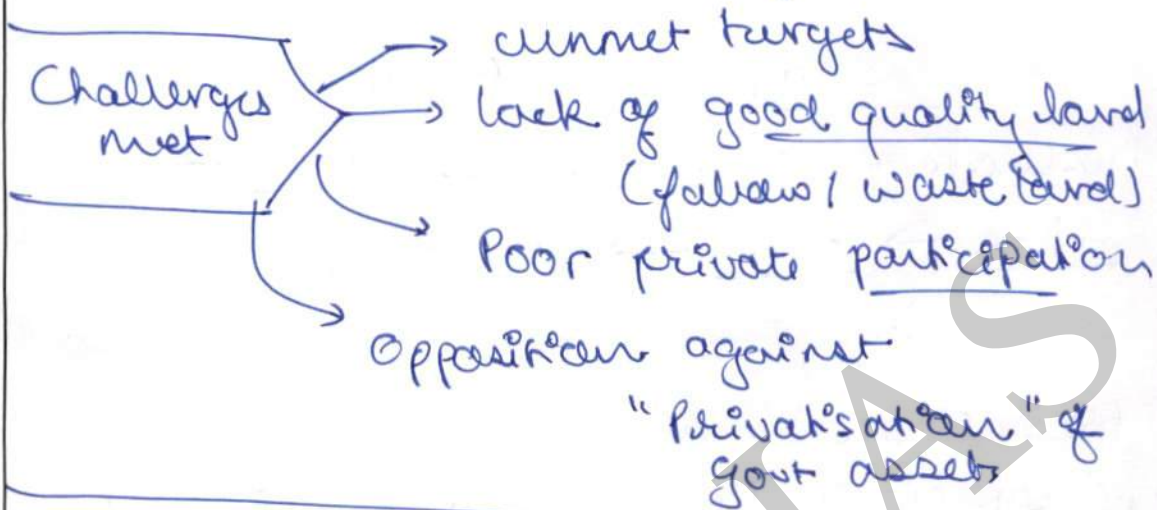 Challenges
met
unmet targets
lack of good quality land
(fallow / waste land)
Poor private participation
Opposition against
"Privatisation" of
govt assets
IAS